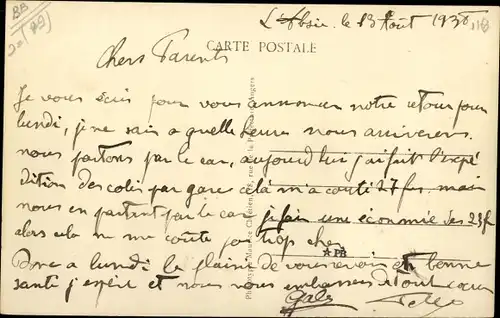 L'Absie. le 13 Août 193
CARTE POSTALE
Chers Parents
Je vous écris pour vous annoncer notre retour pour
lundi, je ne sais a quelle heure nous arriverons
nous partons par le car, aujourd'hui j'ai fait l'expé
dition des colis par gare cela m'a couté 27 frs. mais
nous en partant par le car je fais une économie des 23 f
alors cela ne me coûte pas trop cher
Donc a lundi le plaisir de vous revoir et bonne
santé j'espère et nous vous embrassons de tout cœur